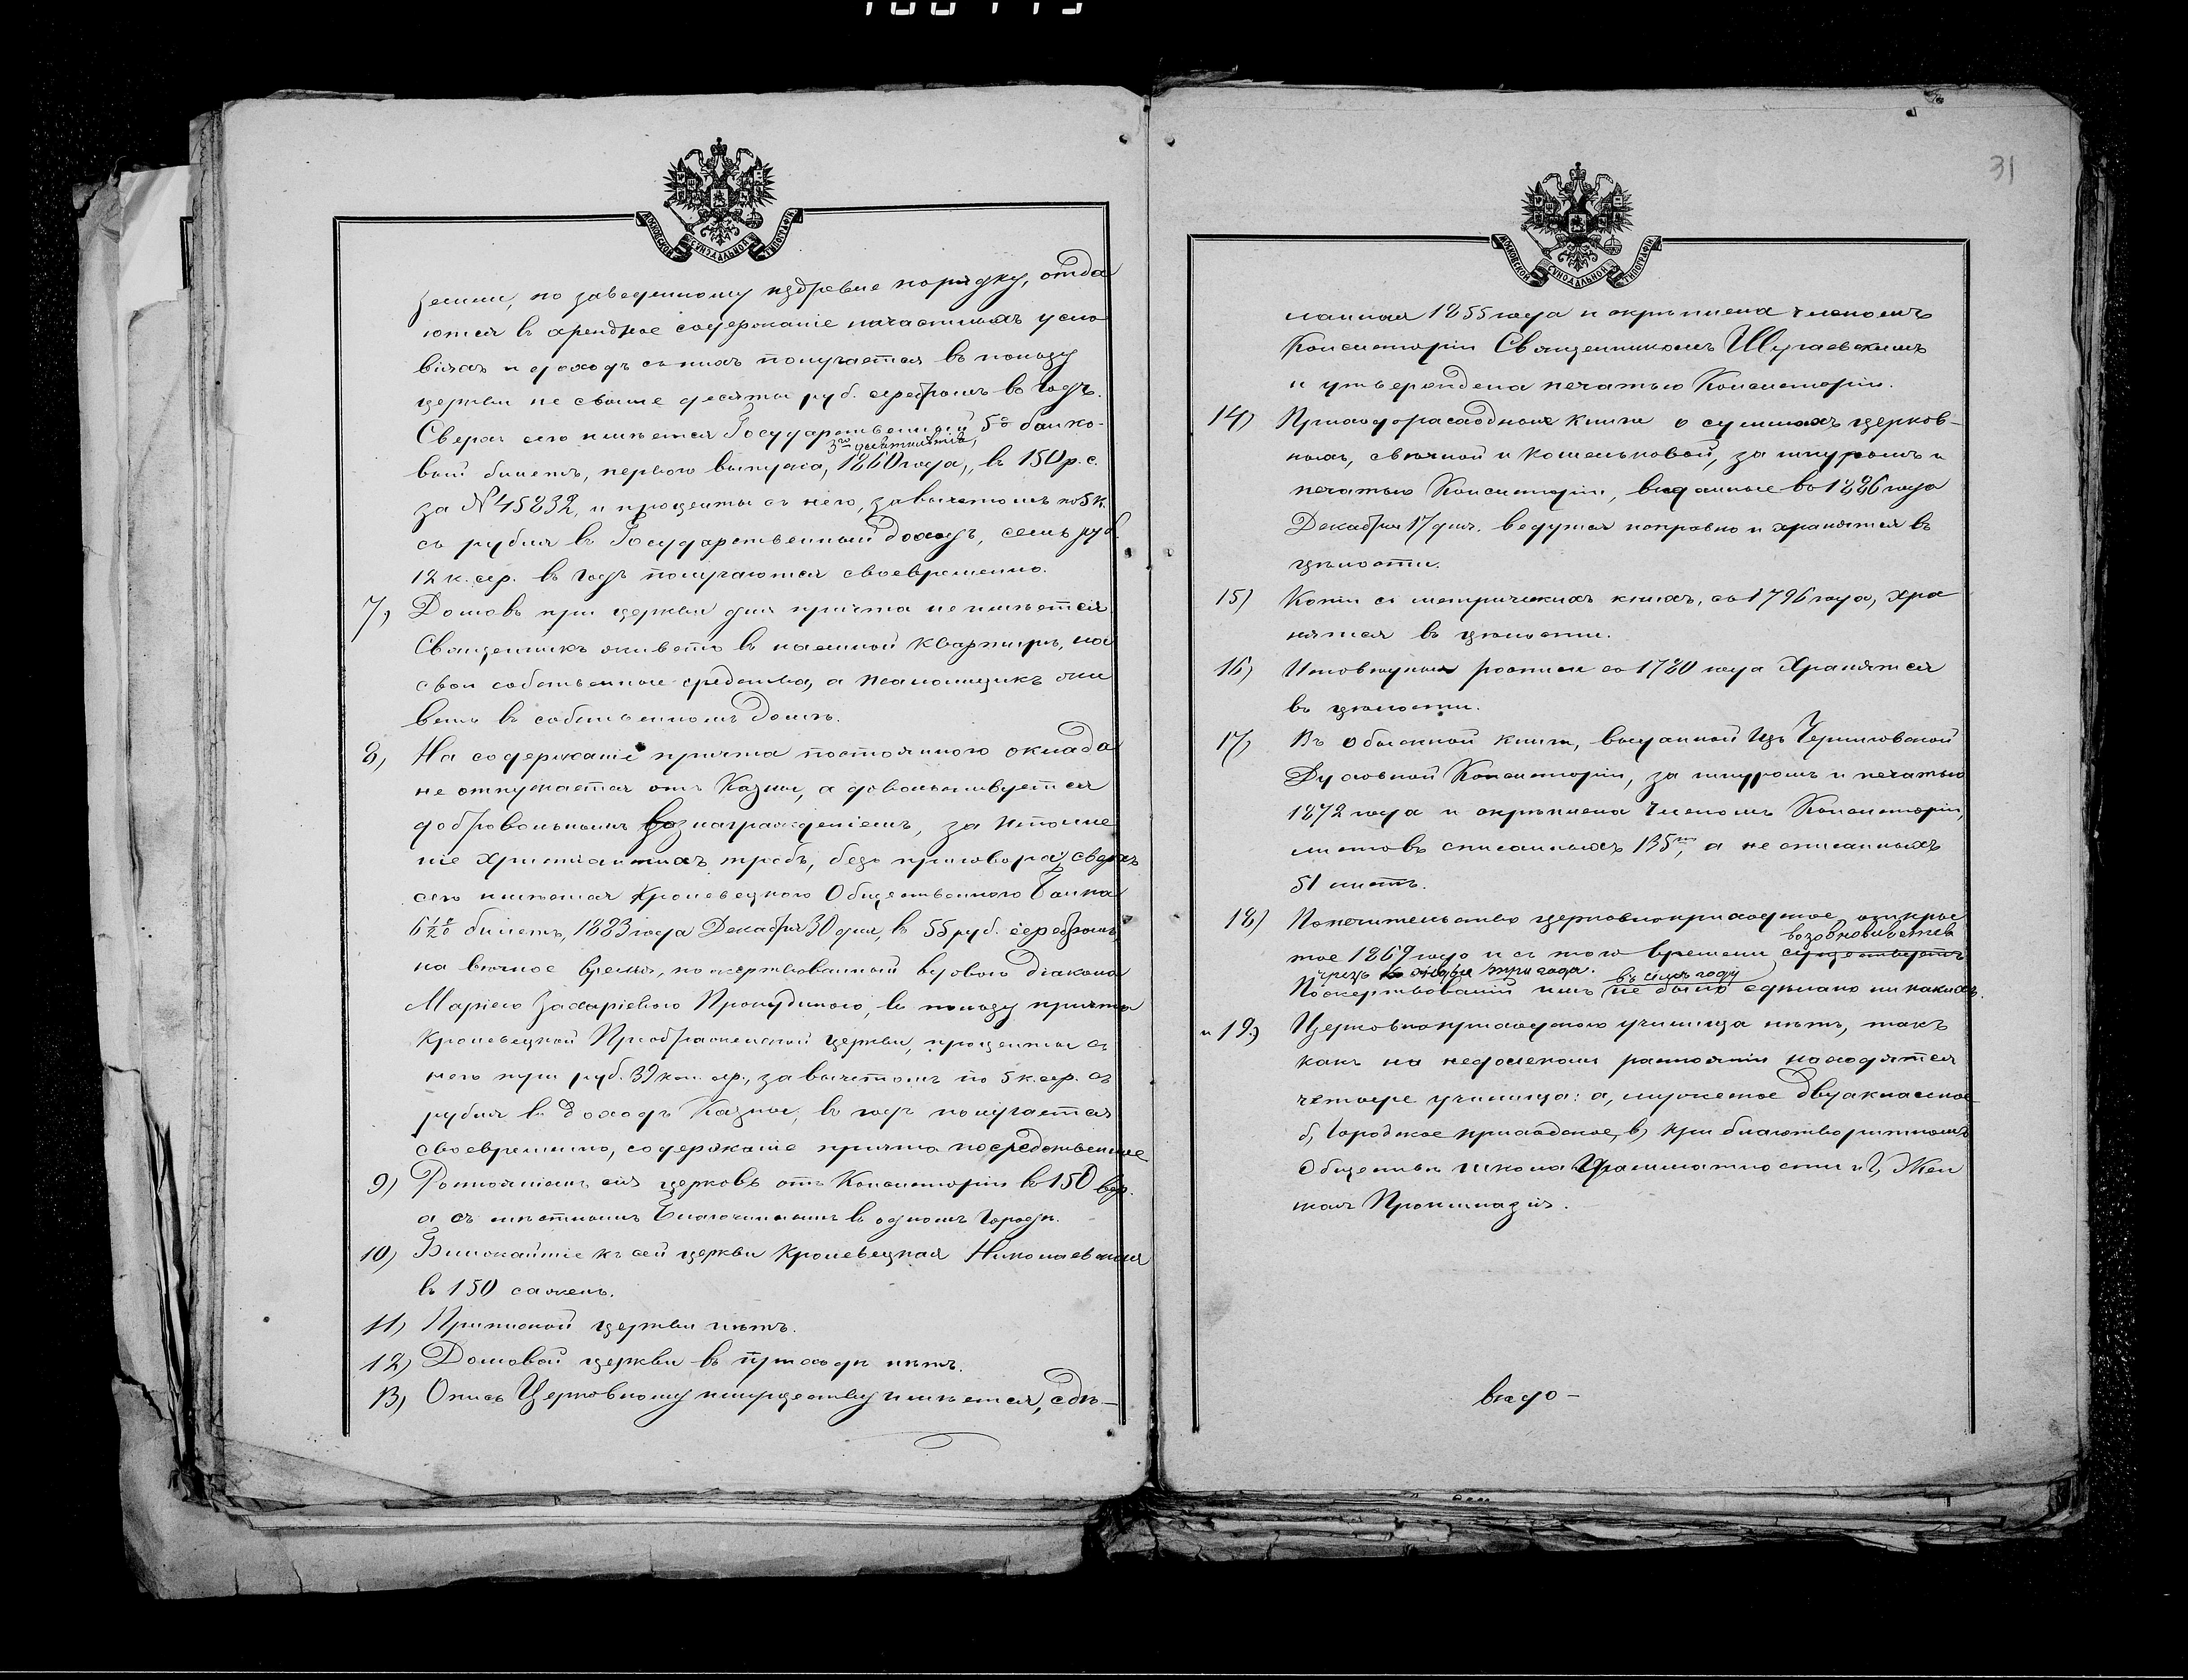 МОСКОВСКОЙ СУНОДАЛЬНОЙ ТИПОГРАФІИ
земли, по заведенному издревле порядку, отда
ются въ арендное содержаніе на частныхъ усло
віяхъ и доходъ съ нихъ получается въ пользу
церкви не свыше десяти руб. серебромъ въ годъ.
Сверхъ сего имѣется Государственный 5% банко-
3го десятилѣтія,
вый билетъ, перваго выпуска, 1860 года, въ 150 р. с.
за № 45832, и проценты съ него, за вычетомъ по 5 к.
съ рубля въ Государственный доходъ, семь руб.
12 к. сер. въ годъ получаются своевременно.
7, Домовъ при церкви для причта не имѣется
Священникъ живетъ въ наемной квартирѣ, на
свои собственные средства, а псаломщикъ жи
ветъ въ собственномъ домѣ.
8, На содержаніе причта постояннаго оклада
не отпускается отъ Казны, а довольствуется
добровольнымъ вознагражденіемъ, за исполне
ніе христіанскихъ требъ, безъ приговора; сверхъ
сего имѣется Кролевецкого Общественного Банка
6½% билетъ, 1883 года Декабря 30 дня, въ 55 руб. серебромъ,
на вѣчное время, пожертвованный вдовою діакона
Маріею Захаріевою Прокудиною, въ пользу причта
Кролевецкой Преображенской церкви, проценты съ
него три руб. 39 коп. сер., за вычетомъ по 5 к. сер. съ
рубля въ доходъ Казны, въ годъ получается
своевременно, содержаніе причта посредственное
9) Разстояніемъ сія церковь отъ Консисторіи въ 150 вер.
а съ мѣстнымъ Благочиннымъ въ одномъ городѣ.
10) Ближайшіе къ сей церкви Кролевецкая Николаевская
въ 150 сажень.
11) Приписной церкви нѣтъ.
12) Домовой церкви въ приходѣ нѣтъ.
13) Опись Церковному имуществу имѣется, сдѣ-
31
МОСКОВСКОЙ СУНОДАЛЬНОЙ ТИПОГРАФІИ
ланная 1855 года и скрѣплена членомъ
Консисторіи Священникомъ Шугаевскимъ
и утверждена печатью Консисторіи.
14) Приходорасходные книги о суммахъ церков-
ныхъ, свѣчной и кошельковой, за шнуромъ и
печатью Консисторіи, выданные въ 1886 года
Декабря 17 дня. ведутся исправно и хранятся въ
цѣлости.
15) Копіи съ метрическихъ книгъ, съ 1796 года, хра
нятся въ цѣлости.
16) Исповѣдныя росписи съ 1780 года хранятся
въ цѣлости.
17) Въ обыскной книгѣ, выданной изъ Черниговской
Духовной Консисторіи, за шнуромъ и печатью
1872 года и скрѣплена Членомъ Консисторіи,
листовъ списанныхъ 135ть, а не списанныхъ
51 листъ.
18) Попечительство церковноприходское, откры
возобновляется
тое 1869 года и съ того времени существуетъ
чрезъ каждые три года. въ семъ году
Пожертвованій имъ не было сдѣлано ни какихъ.
и 19) Церковноприходского училища нѣтъ, такъ
какъ на недалекомъ разстояніи находятся
четыре училища: а, мужеское двуклассное
б, Городское приходское, в, при благотворительномъ
Обществѣ школа Грамматности и г, Жен
ская Прогимназія.
вѣдо-